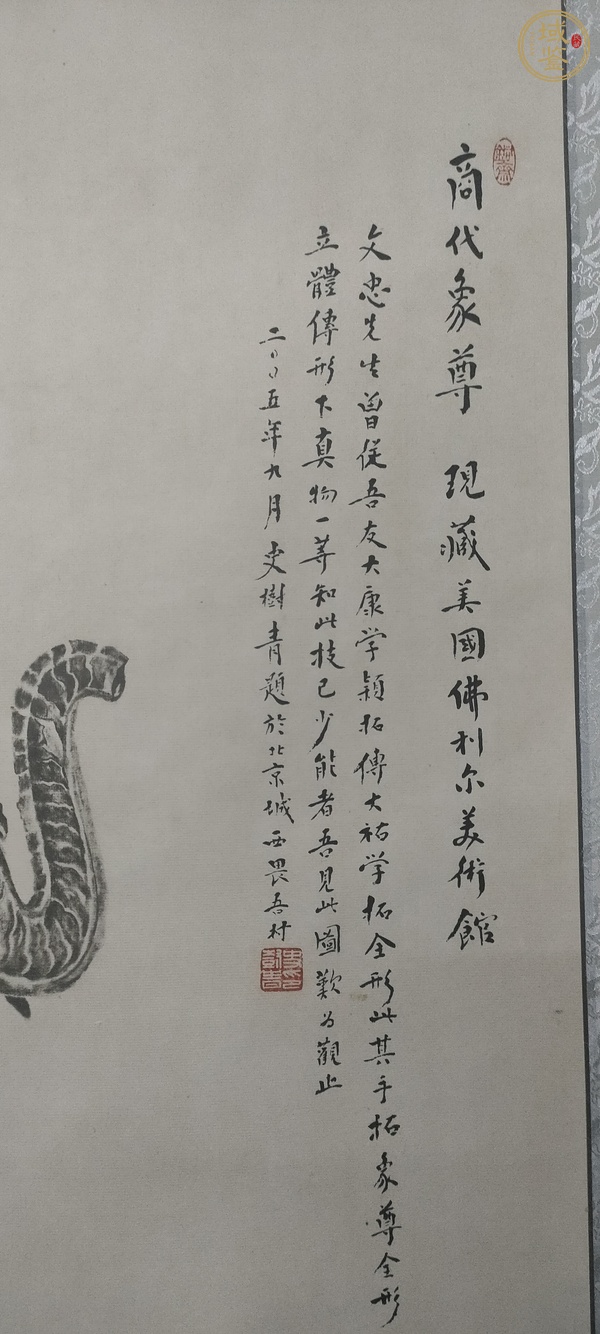 商代象尊 現藏美國佛利尔美術館
文忠先生曾從吾友大康学穎拓傅大祐学拓全形此其手拓象尊全形
立體傳形下真物一等知此技已少能者吾見此圖歎为觀止
二〇〇五年九月史樹青題於北京城西畏吾村
域鉴